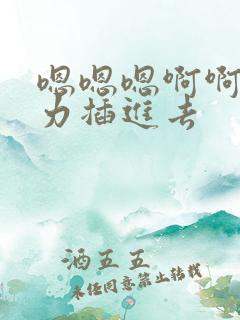 嗯嗯嗯啊啊
力插進去
酒五五
未任同意禁止转载